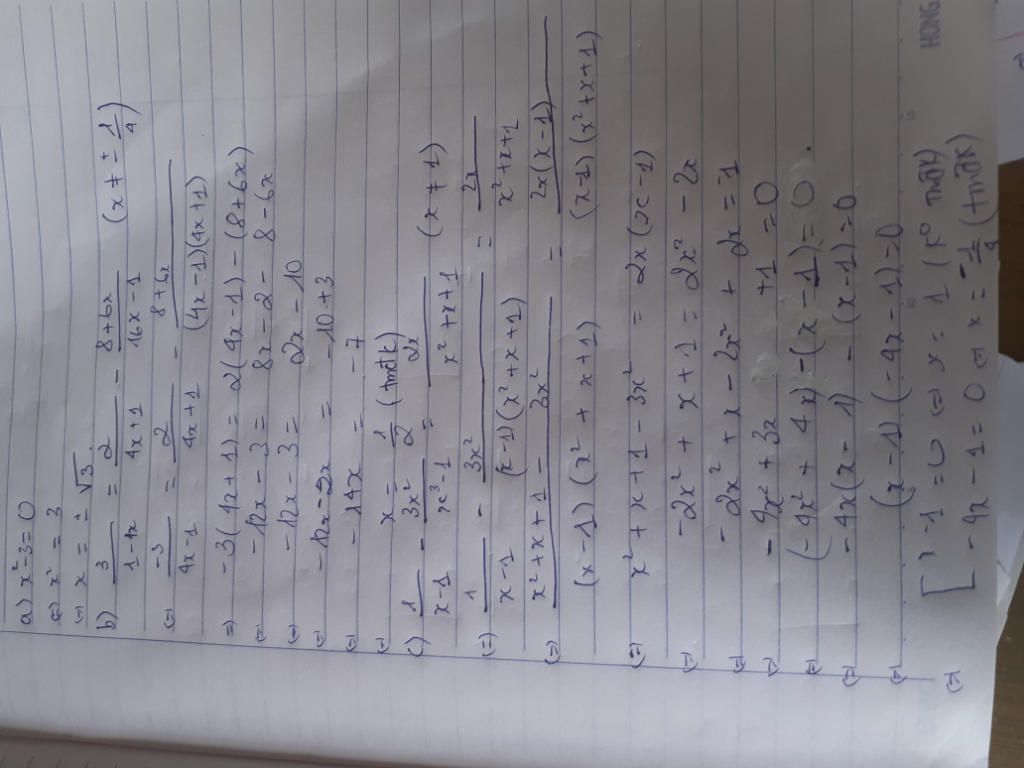 a) x² - 3 = 0
(=) x² = 3
(=) x = ± √3.
b) 3/(1-4x) = 2/(4x+1) - (8+6x)/(16x-1) (x ≠ ± 1/4)
(=) -3/(4x-1) = 2/(4x+1) - (8+6x)/((4x-1)(4x+1))
=) -3(4x+1) = 2(4x-1) - (8+6x)
(=) -12x - 3 = 8x - 2 - 8 - 6x
(=) -12x - 3 = 2x - 10
(=) -12x - 2x = -10 + 3
(=) -14x = -7
(=) x = 1/2 (tmđk)
c) 1/(x-1) - 3x²/(x³-1) = 2x/(x²+x+1) (x ≠ 1)
(=) 1/(x-1) - 3x²/((x-1)(x²+x+1)) = 2x/(x²+x+1)
(=) (x²+x+1 - 3x²)/((x-1)(x²+x+1)) = 2x(x-1)/((x-1)(x²+x+1))
(=) x² + x + 1 - 3x² = 2x(x-1)
(=) -2x² + x + 1 = 2x² - 2x
(=) -2x² + x - 2x² + 2x = 1
(=) -4x² + 3x + 1 = 0
(=) (-4x² + 4x) - (x - 1) = 0.
(=) -4x(x - 1) - (x - 1) = 0
(=) (x - 1)(-4x - 1) = 0
(=) [ x - 1 = 0 (=) x = 1 (k° tmđk)
-4x - 1 = 0 (=) x = -1/4 (tmđk)
HONG